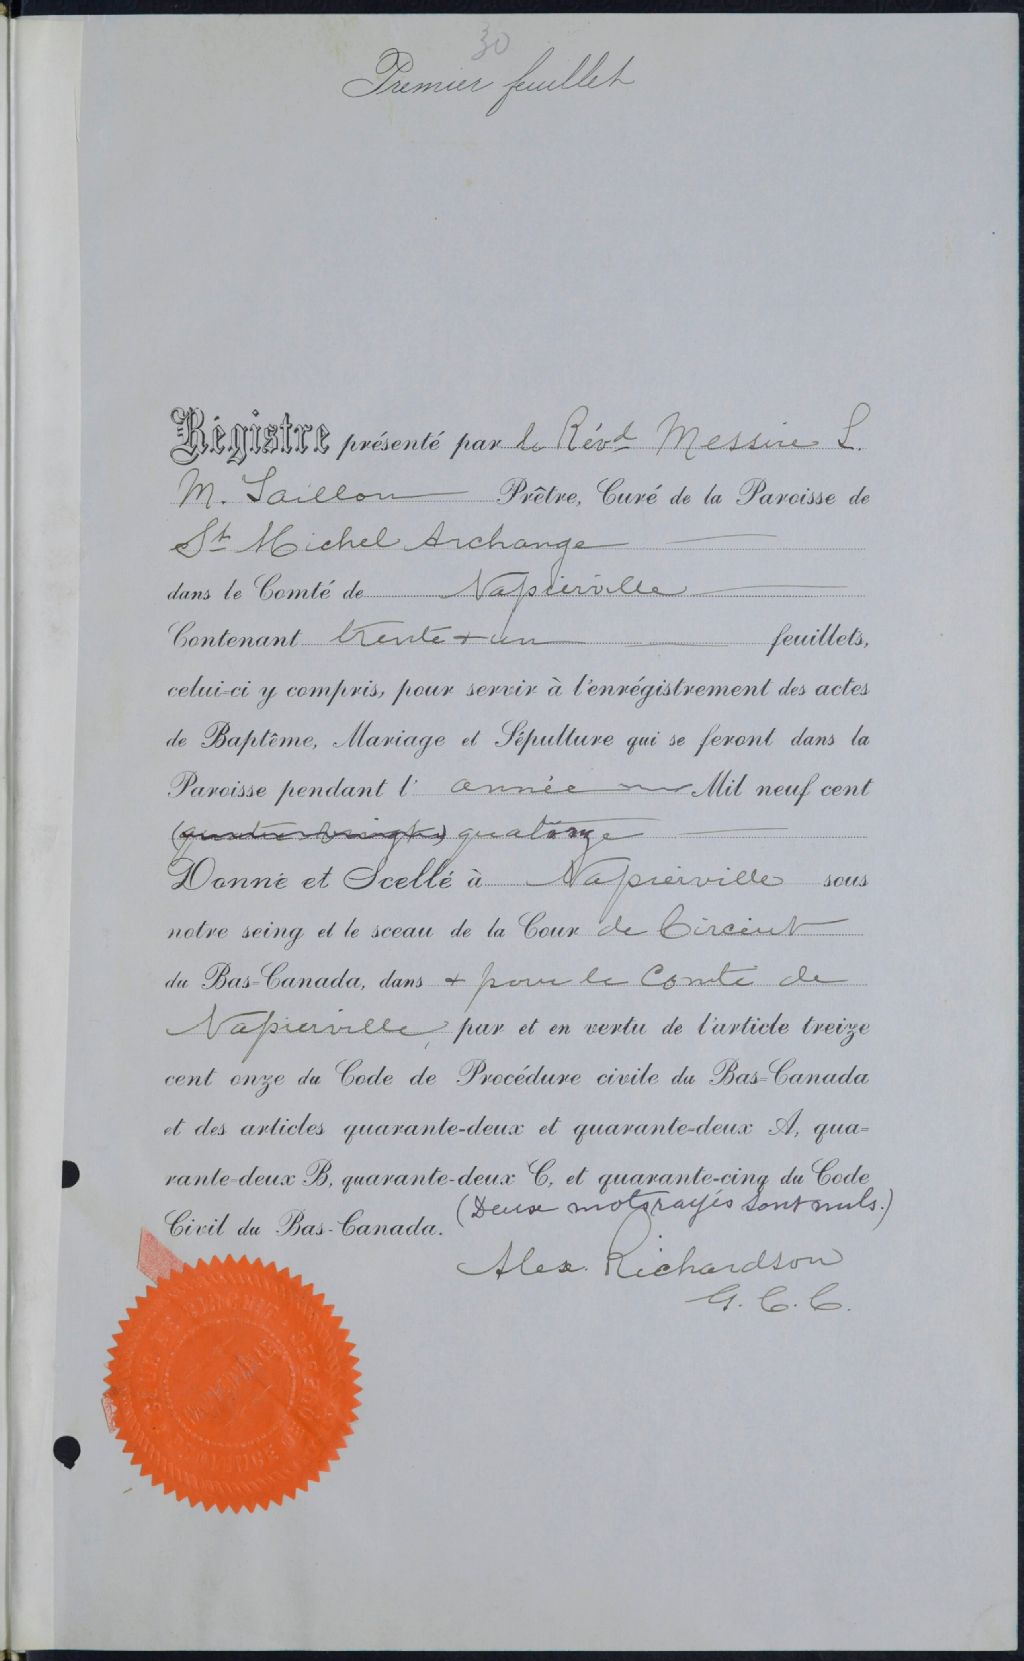 30
Premier feuillet
Régistre présenté par le Révd Messire L.
M. Taillon Prêtre, Curé de la Paroisse de
St Michel Archange
dans le Comté de Napierville
Contenant trente + un feuillets,
celui-ci y compris, pour servir à l'enrégistrement des actes
de Baptême, Mariage et Sépulture qui se feront dans la
Paroisse pendant l' année Mil neuf cent
(quatre vingt) quatorze
Donné et Scellé à Napierville sous
notre seing et le sceau de la Cour de Circuit
du Bas-Canada, dans + pour le Comté de
Napierville, par et en vertu de l'article treize
cent onze du Code de Procédure civile du Bas-Canada
et des articles quarante-deux et quarante-deux A, qua=
rante-deux B, quarante-deux C, et quarante-cinq du Code
Civil du Bas-Canada. (Deux mots rayés sont nuls.)
Alex. Richardson
G. C. C.